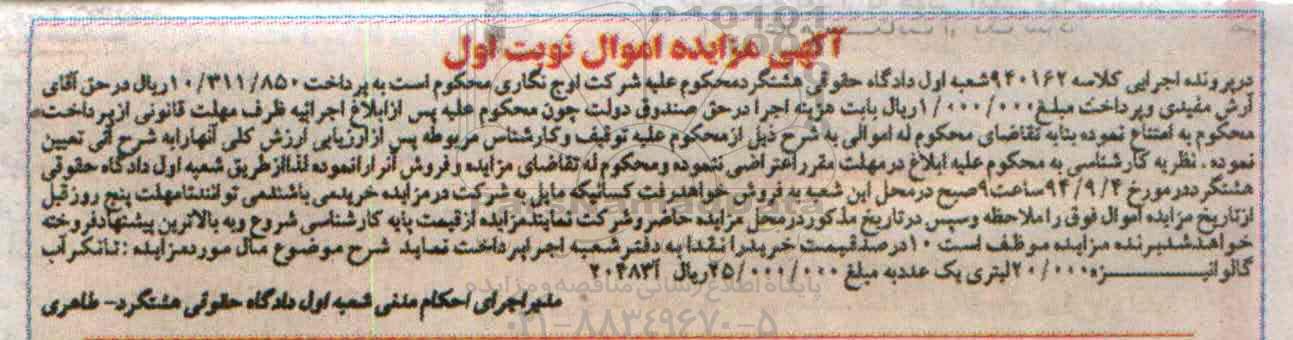 آگهی مزایده اموال نوبت اول
درپرونده اجرایی کلاسه ۹۴۰۱۶۲شعبه اول دادگاه حقوقی هشتگردمحکوم علیه شرکت اوج نگاری محکوم است به پرداخت ۱۰/۳۱۱/۸۵۰ریال درحق آقای
آرش مفیدی وپرداخت مبلغ۱/۰۰۰/۰۰۰ریال بابت هزینه اجرا درحق صندوق دولت چون محکوم علیه پس ازابلاغ اجرائیه ظرف مهلت قانونی ازپرداخت
محکوم به امتناع نموده بنابه تقاضای محکوم له اموالی به شرح ذیل ازمحکوم علیه توقیف وکارشناس مربوطه پس ازارزیابی ارزش کلی آنهارابه شرح آتی تعیین
نموده . نظربه کارشناسی به محکوم علیه ابلاغ درمهلت مقرراعتراضی ننموده ومحکوم له تقاضای مزایده وفروش آنرارانموده لذاازطریق شعبه اول دادگاه حقوقی
هشتگرددرمورخ ۹۴/۹/۴ساعت۹صبح درمحل این شعبه به فروش خواهدرفت کسانیکه مایل به شرکت درمزایده خریدمی باشندمی توانندتامهلت پنج روزقبل
ازتاریخ مزایده اموال فوق راملاحظه وسپس درتاریخ مذکوردرمحل مزایده حاضروشرکت نمایندمزایده ازقیمت پایه کارشناسی شروع وبه بالاترین پیشنهادفروخته
خواهدشدبرنده مزایده موظف است ۱۰درصدقیمت خریدرا نقدا به دفترشعبه اجراپرداخت نماید شرح موضوع مال موردمزایده : تانکرآب
گالوانیـــــــزه۲۰/۰۰۰لیتری یک عددبه مبلغ ۲۵/۰۰۰/۰۰۰ریال آ۲۰۴۸۳
مدیراجرای احکام مدنی شعبه اول دادگاه حقوقی هشتگرد- طاهری
پایگاه اطلاع رسانی مناقصه و مزایده
۰۲۱-۸۸۳۴۹۶۷۰-۵